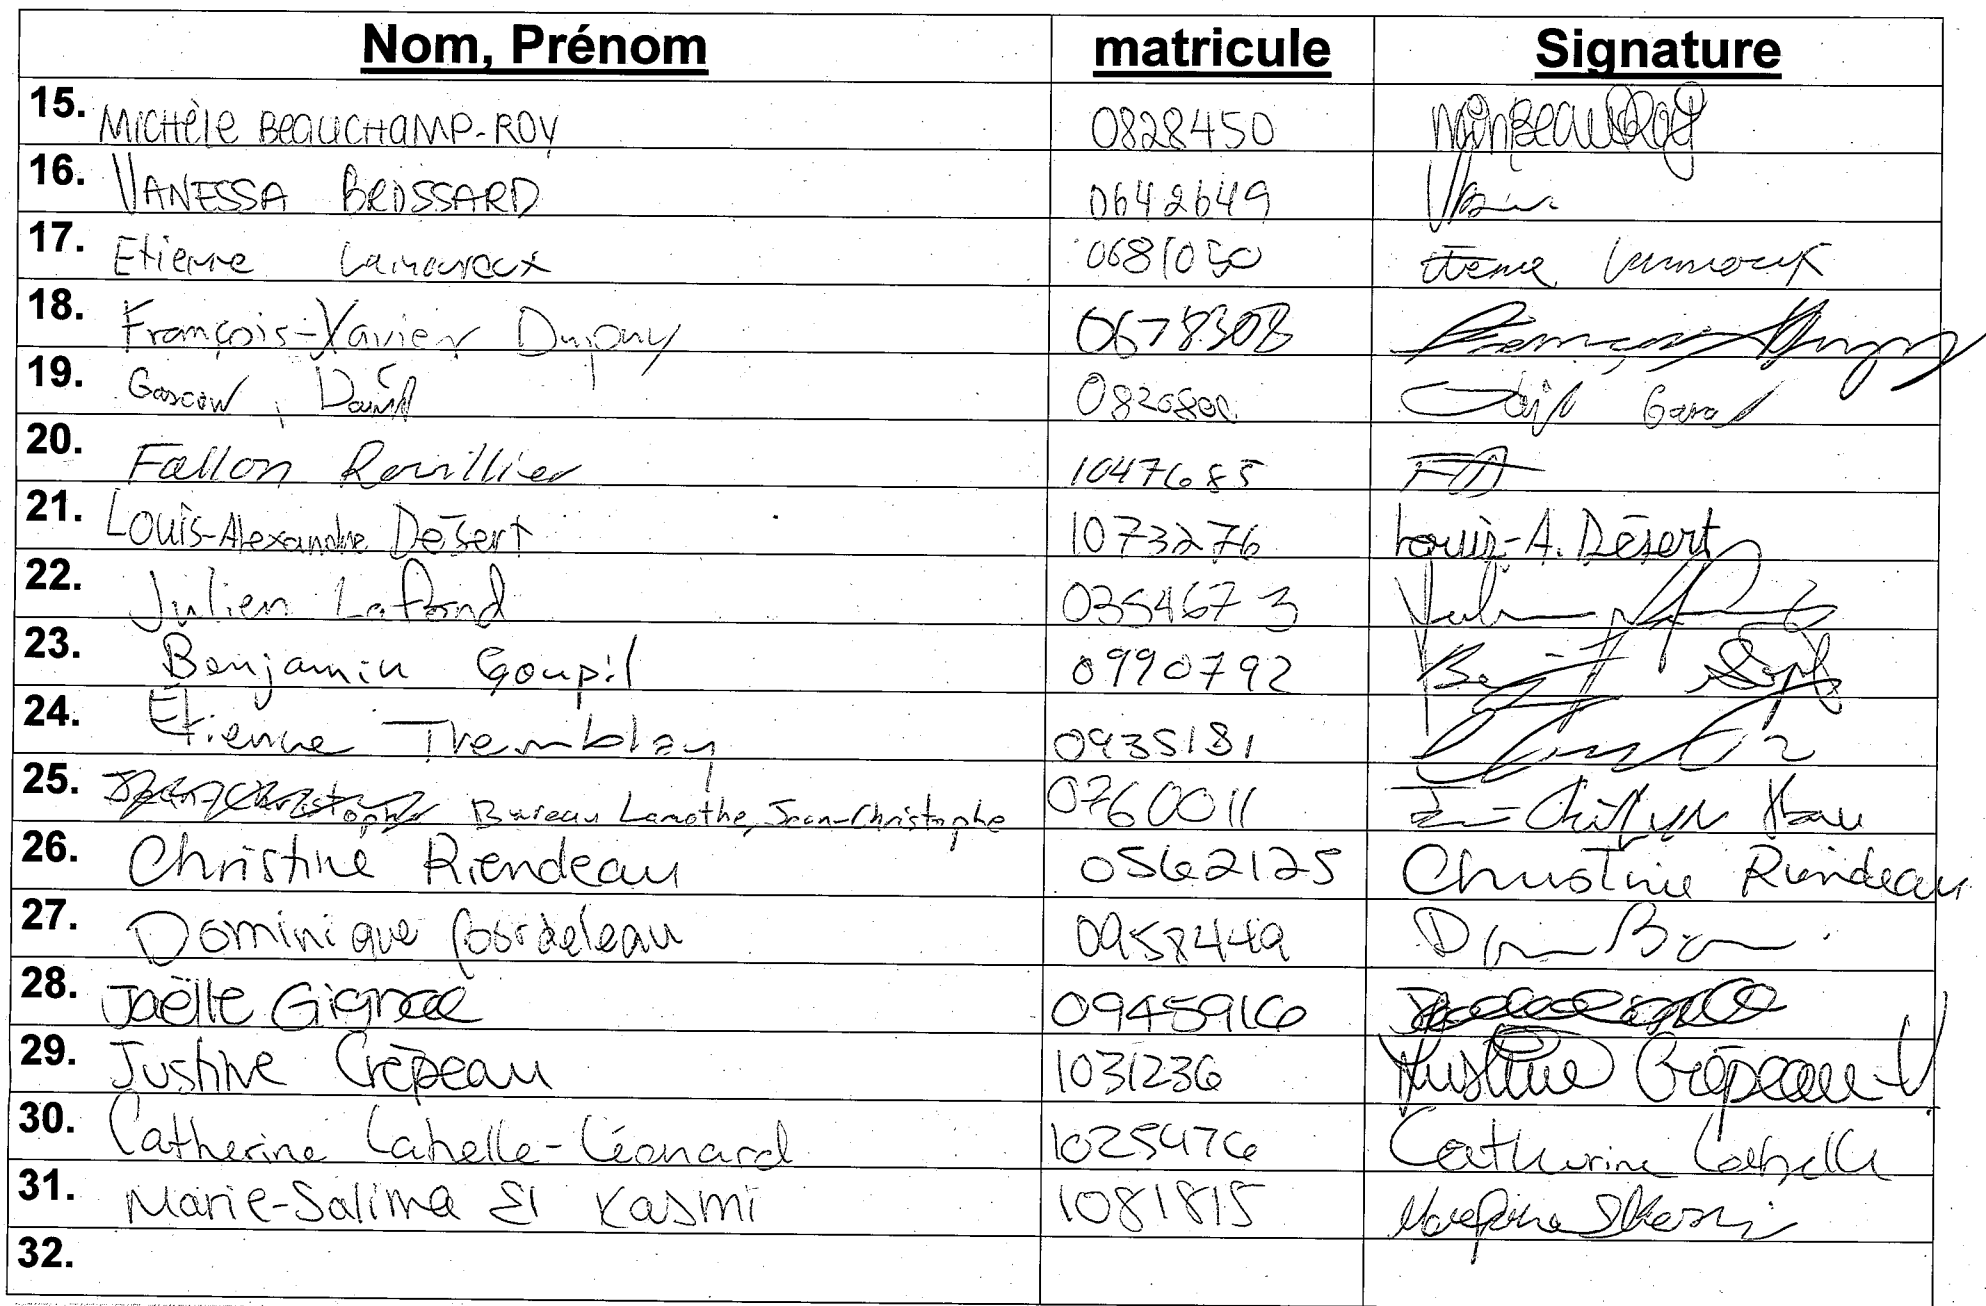 Nom, Prénom matricule Signature
15. MICHÈLE BEAUCHAMP-ROY 0828450
16. VANESSA BROSSARD 0642649
17. Etienne Lamoureux 0681050 Etienne Lamoureux
18. François-Xavier Dupuy 0678308
19. Gascon, David
20. Fallon Rouillier 1047685
21. Louis-Alexandre Désert 1073276 Louis-A. Désert
22. Julien Lafond 0354673
23. Benjamin Goupil 0990792
24. Étienne Tremblay 0935181
25. Bureau Lamothe, Jean-Christophe 0760011
26. Christine Riendeau 0562125 Christine Riendeau
27. Dominique Bordeleau 0958449
28. Joëlle Gignac 0945916
29. Justine Crêpeau 1031236 Justine Crêpeau-V.
30. Catherine Labelle-Léonard 1025476 Catherine Labelle
31. Marie-Salima El Kasmi 1081815
32.